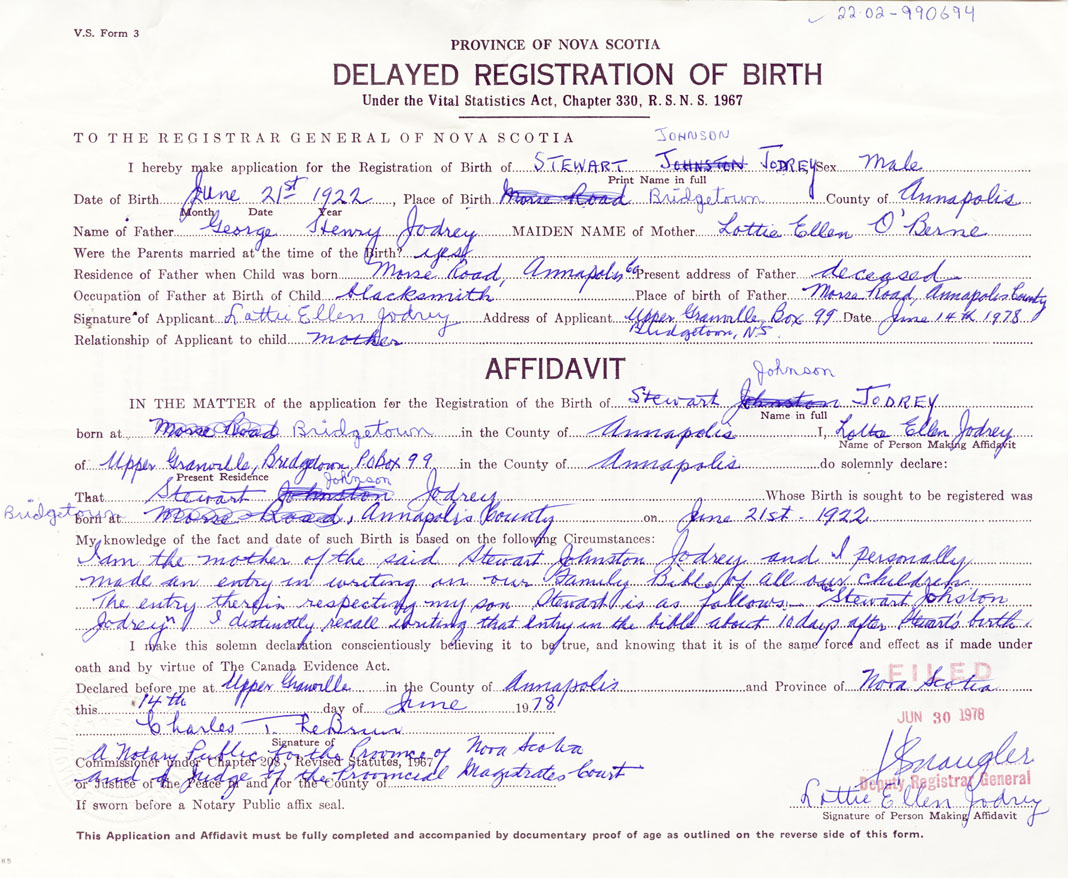 22-02-990694
V.S. Form 3
PROVINCE OF NOVA SCOTIA
DELAYED REGISTRATION OF BIRTH
Under the Vital Statistics Act, Chapter 330, R.S.N.S. 1967
TO THE REGISTRAR GENERAL OF NOVA SCOTIA
JOHNSON
I hereby make application for the Registration of Birth of STEWART JOHNSTON JODREY Sex Male
Print Name in full
Date of Birth June 21st 1922, Place of Birth Morse Road Bridgetown County of Annapolis
Month Date Year
Name of Father George Henry Jodrey MAIDEN NAME of Mother Lottie Ellen O'Berne
Were the Parents married at the time of the Birth? yes
Residence of Father when Child was born Morse Road, Annapolis Co. Present address of Father deceased
Occupation of Father at Birth of Child blacksmith Place of birth of Father Morse Road, Annapolis County
Signature of Applicant Lottie Ellen Jodrey Address of Applicant Upper Granville, Box 99 Date June 14th 1978
Bridgetown, N.S.
Relationship of Applicant to child mother
AFFIDAVIT
Johnson
IN THE MATTER of the application for the Registration of the Birth of Stewart Johnston JODREY
Name in full
born at Morse Road Bridgetown in the County of Annapolis I, Lotte Ellen Jodrey
Name of Person Making Affidavit
of Upper Granville, Bridgetown, P.O Box 99 in the County of Annapolis do solemnly declare:
Present Residence
Johnson
That Stewart Johnston Jodrey Whose Birth is sought to be registered was
Bridgetown
born at Morse Road, Annapolis County on June 21st - 1922
My knowledge of the fact and date of such Birth is based on the following Circumstances:
I am the mother of the said Stewart Johnston Jodrey and I personally
made an entry in writing on our Family Bible of all our children
The entry therein respecting my son Stewart is as follows - "Stewart Johston
Jodrey" I distinctly recall writing that entry in the bible about 10 days after Stewart's birth.
I make this solemn declaration conscientiously believing it to be true, and knowing that it is of the same force and effect as if made under
oath and by virtue of The Canada Evidence Act.
FILED
Declared before me at Upper Granville in the County of Annapolis and Province of Nova Scotia
this 14th day of June 1978
JUN 30 1978
Charles T. LeBrun
Signature of
A Notary Public for the Province of Nova Scotia
Commissioner under Chapter 208, Revised Statutes, 1967
and a Judge of the Provincial Magistrates Court
or Justice of the Peace in and for the County of
Deputy Registrar General
If sworn before a Notary Public affix seal.
Lottie Ellen Jodrey
Signature of Person Making Affidavit
This Application and Affidavit must be fully completed and accompanied by documentary proof of age as outlined on the reverse side of this form.